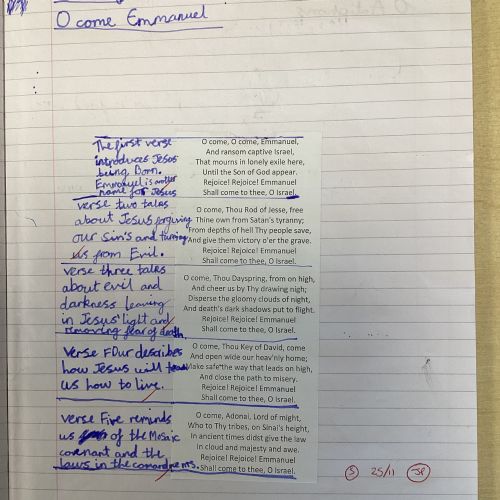 O come Emmanuel
The first verse
introduces Jesus
being Born.
Emmanuel is another
name for Jesus
O come, O come, Emmanuel,
And ransom captive Israel,
That mourns in lonely exile here,
Until the Son of God appear.
Rejoice! Rejoice! Emmanuel
Shall come to thee, O Israel.
verse two tales
about Jesus forgiving
our Sin's and turning
us from Evil.
O come, Thou Rod of Jesse, free
Thine own from Satan's tyranny;
From depths of hell Thy people save,
And give them victory o'er the grave.
Rejoice! Rejoice! Emmanuel
Shall come to thee, O Israel.
verse three tales
about evil and
darkness leaving
in Jesus' light and
removing fear of death.
O come, Thou Dayspring, from on high,
And cheer us by Thy drawing nigh;
Disperse the gloomy clouds of night,
And death's dark shadows put to flight.
Rejoice! Rejoice! Emmanuel
Shall come to thee, O Israel.
Verse Four describes
how Jesus will
us how to live.
O come, Thou Key of David, come
And open wide our heav'nly home;
Make safe the way that leads on high,
And close the path to misery.
Rejoice! Rejoice! Emmanuel
Shall come to thee, O Israel.
verse Five reminds
us of the Mosaic
covenant and the
laws in the
O come, Adonai, Lord of might,
Who to Thy tribes, on Sinai's height,
In ancient times didst give the law
In cloud and majesty and awe.
Rejoice! Rejoice! Emmanuel
Shall come to thee, O Israel.
S 25/11